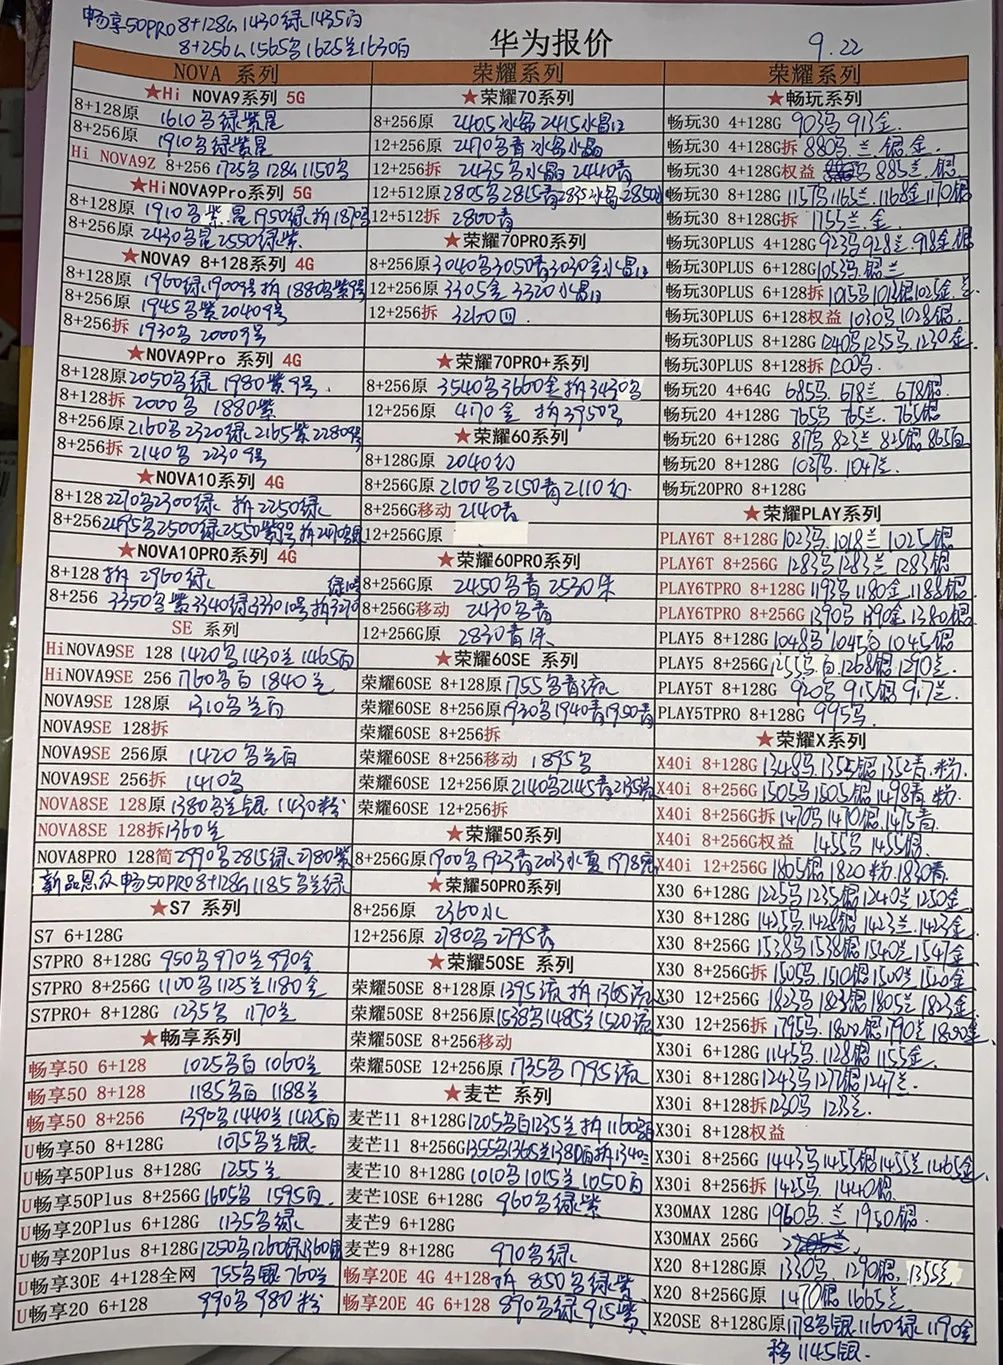 畅享50PRO 8+128G 1430绿 1435白
8+256G 1565乌 1625兰 1630白
华为报价
9.22
NOVA 系列
★Hi NOVA9系列 5G
8+128原 1610乌绿紫星
8+256原 1910乌绿紫星
Hi NOVA9Z 8+256 1725 128G 1150乌
★HiNOVA9Pro系列 5G
8+128原 1910乌紫星1950绿拆1870
8+256原 2430乌星2550绿紫
★NOVA9 8+128系列 4G
8+128原 1960绿1900号拆1880乌紫9号
8+256原 1945乌紫2040号
8+256拆 1930乌 2000号
★NOVA9Pro 系列 4G
8+128原2050乌绿 1980紫9号
8+128拆 2000乌 1880紫
8+256原2160乌2320绿2165紫2280号
8+256拆 2140乌 2230号
★NOVA10系列 4G
8+128 2270乌2300绿 拆2250绿
8+256 2495乌2500绿2550紫号
★NOVA10PRO系列 4G
8+128 拆 2960绿
8+256 3350乌紫3340绿3330 10号拆3270
绿10号
SE 系列
HiNOVA9SE 128 1420乌1430兰1465白
HiNOVA9SE 256 1760乌白 1840兰
NOVA9SE 128原 1310乌兰白
NOVA9SE 128拆
NOVA9SE 256原 1420乌兰白
NOVA9SE 256拆 1410乌
NOVA8SE 128原 1380乌兰银 1430粉
NOVA8SE 128拆1360兰
NOVA8PRO 128简 2990乌2815绿2780紫
新品恩众畅50PRO 8+128G 1185乌兰绿
★S7 系列
S7 6+128G
S7PRO 8+128G 950乌970兰990金
S7PRO 8+256G 1100乌1125兰1180金
S7PRO+ 8+128G 1235乌 1170兰
★畅享系列
畅享50 6+128 1025乌白 1060兰
畅享50 8+128 1185乌白 1188兰
畅享50 8+256 1390乌1440兰1425白
U畅享50 8+128G 1075乌兰银
U畅享50Plus 8+128G 1255兰
U畅享50Plus 8+256G 1605乌 1595白
U畅享20Plus 6+128G 1135乌绿
U畅享20Plus 8+128G 1250乌1260绿1360银
U畅享30E 4+128全网 755乌银 760兰
U畅享20 6+128 990乌 980粉
荣耀系列
★荣耀70系列
8+256原 2405冰乌2415水晶
12+256原 2470乌青冰乌水晶
12+256拆 2435乌水晶 2440青
12+512原 2805乌2815青2835水晶2850
12+512拆 2800青
★荣耀70PRO系列
8+256原 3040乌3050青3030金水晶
12+256原 3305金 3320水晶
12+256拆 3260
★荣耀70PRO+系列
8+256原 3540乌3660金拆3430乌
12+256原 4170金 拆3950乌
★荣耀60系列
8+128G原 2040幻
8+256G原 2100乌2150青2110幻
8+256G移动 2140青
12+256G原
★荣耀60PRO系列
8+256G原 2450乌青 2530朱
8+256G移动 2430乌青
12+256G原 2830青朱
★荣耀60SE 系列
荣耀60SE 8+128原1755乌青流
荣耀60SE 8+256原 1930乌1940青1950青
荣耀60SE 8+256拆
荣耀60SE 8+256移动 1895乌
荣耀60SE 12+256原2140乌2145青2135
荣耀60SE 12+256拆
★荣耀50系列
8+256G原1900乌1923青2013水夏1978
★荣耀50PRO系列
8+256原 2360水
12+256原 2780乌 2795青
★荣耀50SE 系列
荣耀50SE 8+128原1395流 拆1365流
荣耀50SE 8+256原1538乌1485兰1520流
荣耀50SE 8+256移动
荣耀50SE 12+256原 1735乌 1795流
★麦芒 系列
麦芒11 8+128G1205乌白1235兰 拆1160乌
麦芒11 8+256G1355乌1365兰1380白拆1340兰
麦芒10 8+128G 1010乌 1015兰 1050白
麦芒10SE 6+128G 960乌绿紫
麦芒9 6+128G
麦芒9 8+128G 970乌绿
畅享20E 4G 4+128 拆 850乌绿紫
畅享20E 4G 6+128 890乌绿 915紫
荣耀系列
★畅玩系列
畅玩30 4+128G 903乌 913金
畅玩30 4+128G拆 880乌兰银金
畅玩30 4+128G权益 885兰银
畅玩30 8+128G 1157乌1165兰1168金1170银
畅玩30 8+128G拆 1155兰金
畅玩30PLUS 4+128G 923乌928兰918金银
畅玩30PLUS 6+128G1053乌银兰
畅玩30PLUS 6+128拆 1015乌1013银1025金兰
畅玩30PLUS 6+128权益 1030乌1028银
畅玩30PLUS 8+128G 1240乌1235乌1230金
畅玩30PLUS 8+128拆 1200乌
畅玩20 4+64G 685乌 678兰 678银
畅玩20 4+128G 765乌 765兰 765银
畅玩20 6+128G 817乌 823兰 825银 865白
畅玩20 8+128G 1037乌 1047兰
畅玩20PRO 8+128G
★荣耀PLAY系列
PLAY6T 8+128G 1023乌 1018兰 1025银
PLAY6T 8+256G 1283乌 1283兰 1283银
PLAY6TPRO 8+128G 1193乌1180金1188银
PLAY6TPRO 8+256G 1390乌1390金1380银
PLAY5 8+128G 1048乌 1045白 1045银
PLAY5 8+256G 1255乌白1268银1290兰
PLAY5T 8+128G 920乌 915银 917兰
PLAY5TPRO 8+128G 995乌
★荣耀X系列
X40i 8+128G 1348乌 1355银 1352青粉
X40i 8+256G 1505乌1505银1498青粉
X40i 8+256G拆 1470乌1470银1475青
X40i 8+256G权益 1455乌1455银
X40i 12+256G 1805银1820粉1830青
X30 6+128G 1225乌1235银1240兰1250金
X30 8+128G 1435乌1428银1423兰1423金
X30 8+256G 1538乌1538银1540兰1547金
X30 8+256G拆 1505乌1510银1500兰1520金
X30 12+256G 1823乌1823银1805兰1823金
X30 12+256拆 1795乌1800银1790兰1800金
X30i 6+128G 1145乌1128银1155金
X30i 8+128G 1243乌1277银1247兰
X30i 8+128拆 1230乌 1232兰
X30i 8+128权益
X30i 8+256G 1443乌1455银1455兰1465金
X30i 8+256拆 1425乌 1440银
X30MAX 128G 1960乌兰 1950银
X30MAX 256G
X20 8+128G原 1330乌 1290银 1355兰
X20 8+256G原 1470银 1665兰
X20SE 8+128G原1178乌银1160绿1190金
移1145银